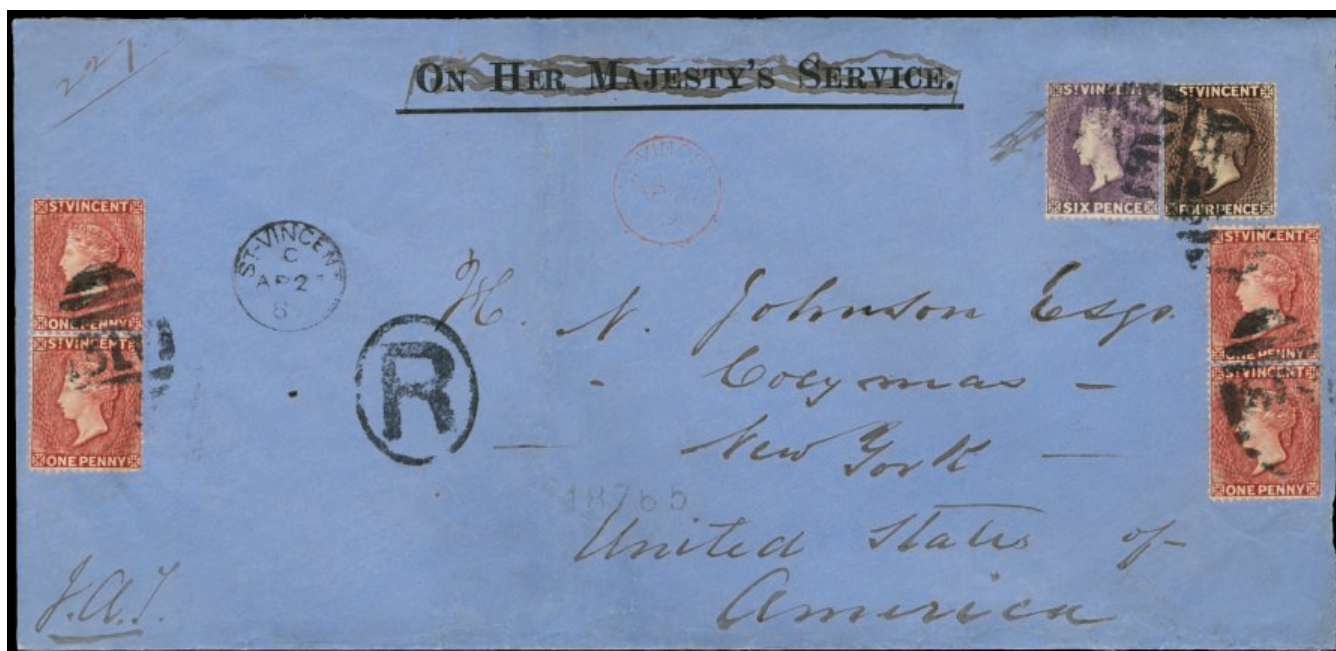 227.
ON HER MAJESTY'S SERVICE.
ST VINCENT
SIX PENCE
ST VINCENT
FOUR PENCE
ST VINCENT
ONE PENNY
ST VINCENT
ONE PENNY
ST-VINCENT
C
AP 2
R
ST VINCENT
ONE PENNY
ST VINCENT
ONE PENNY
H. N. Johnson Esqr.
- Coeymas -
- New York -
18765
United States of
America
J.A.T.